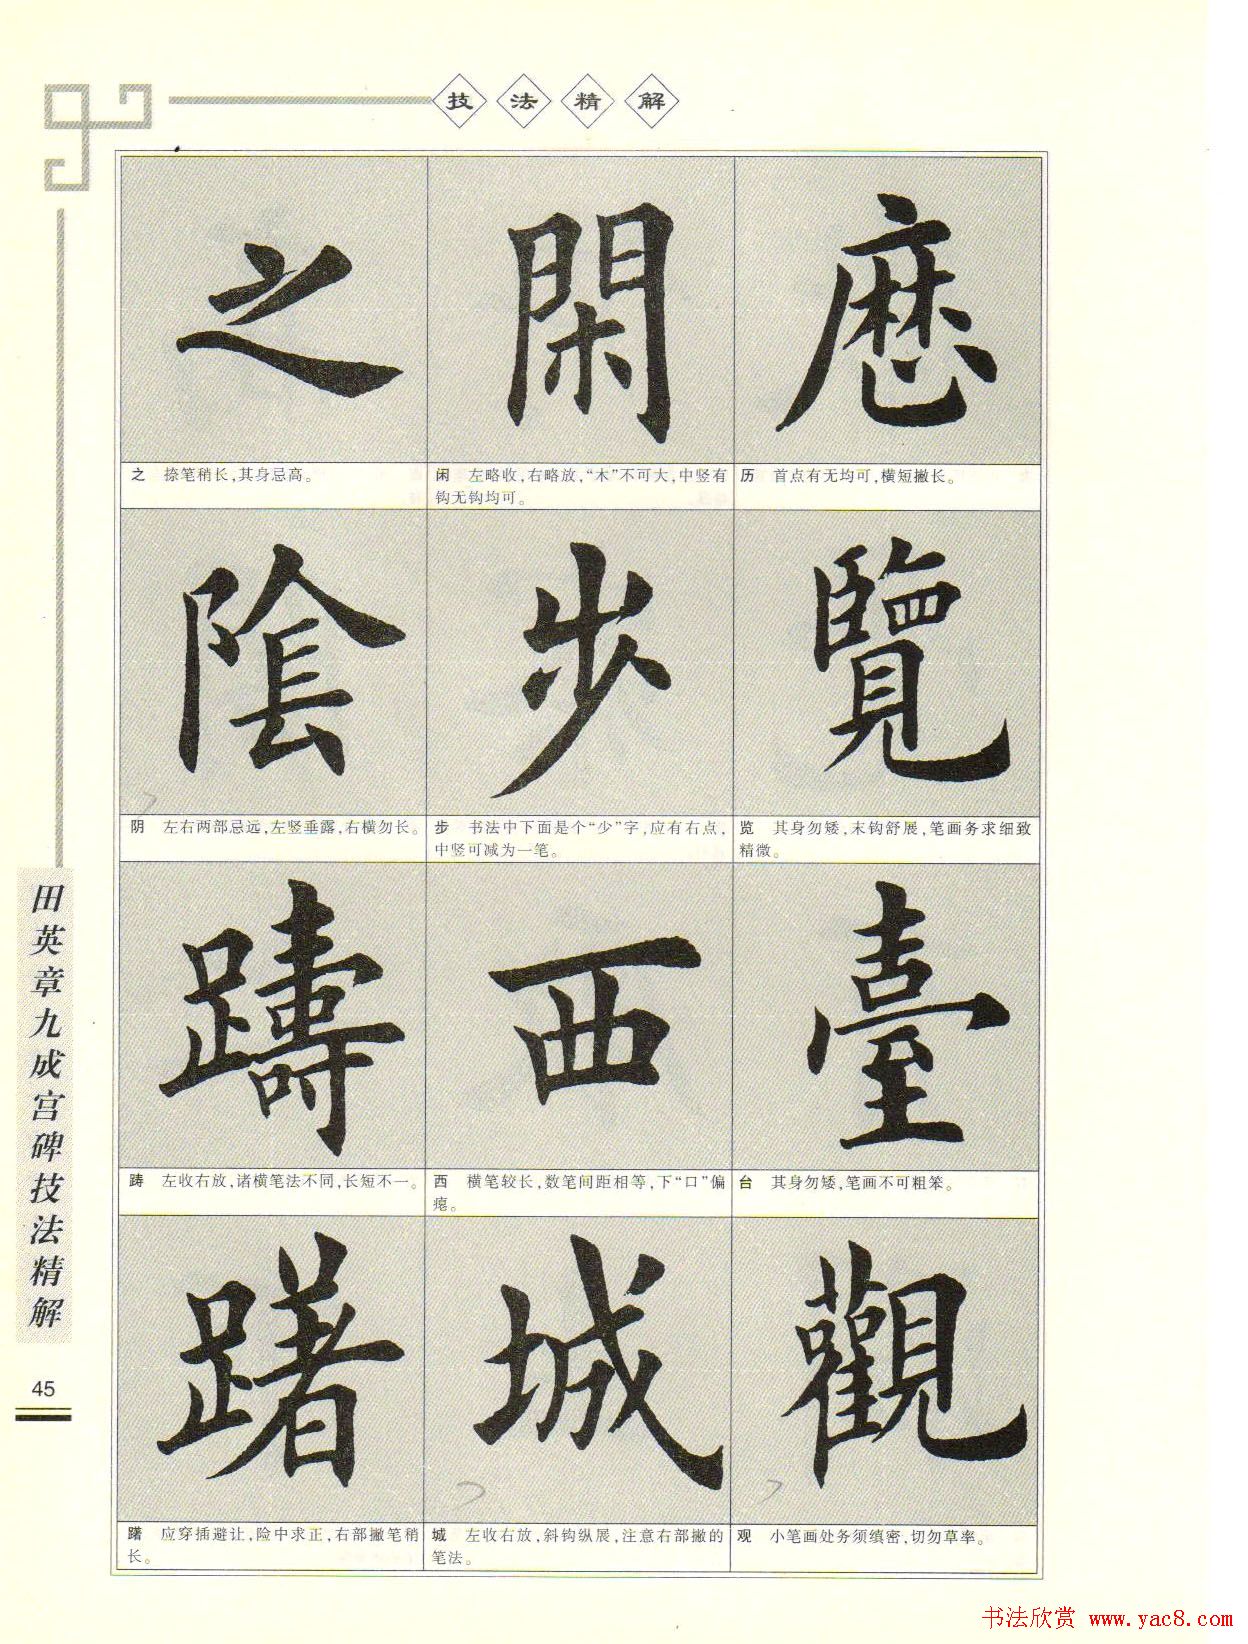 技法精解
歷
历 首点有无均可,横短撇长。
覽
览 其身勿矮,末钩舒展,笔画务求细致
精微。
臺
台 其身勿矮,笔画不可粗笨。
觀
观 小笔画处务须缜密,切勿草率。
閑
闲 左略收,右略放,“木”不可大,中竖有
钩无钩均可。
步
步 书法中下面是个“少”字,应有右点,
中竖可减为一笔。
西
西 横笔较长,数笔间距相等,下“口”偏
宽。
城
城 左收右放,斜钩纵展,注意右部撇的
笔法。
之
之 捺笔稍长,其身忌高。
陰
阴 左右两部忌远,左竖垂露,右横勿长。
躊
踌 左收右放,诸横笔法不同,长短不一。
躇
躇 应穿插避让,险中求正,右部撇笔稍
长。
田英章九成宫碑技法精解
45
书法欣赏 www.yac8.com